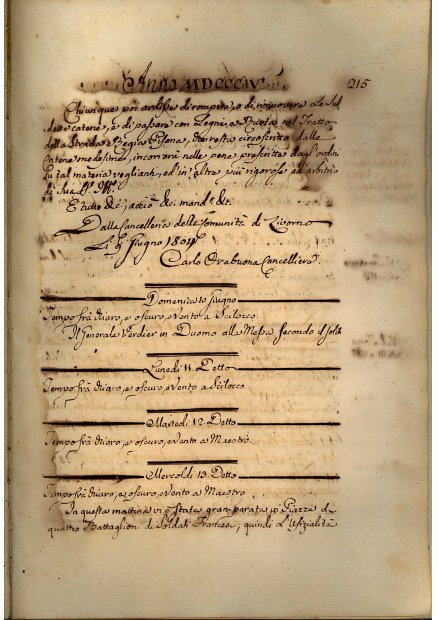 Anno MDCCCIV
215
Chiunque poi ardisse di rompere, o di rimuovere le Sud.
dette catene, e di passare con Legni, a Ruota nel Tratto
della Strada Regia Pisana, che resta circoscritto dalle
Catene medesime, incorrerà nelle pene prescritte dagl'ordini
su tal materia veglianti, ed in altre più rigorose ad arbitrio
di Sua
E tutto &c; acciò &c; mand. &c.
Dalla Cancelleria delle Comunità di Livorno
Li 9 Giugno 1804
Carlo Orabuona Cancelliere
Domenica 10 Giugno
Tempo frà chiaro, e oscuro, Vento a Scilocco.
Il Generale Verdier in Duomo alla Messa secondo il solito
Lunedi 11. Detto
Tempo frà chiaro, e oscuro, e Vento a Scilocco
Martedi 12. Detto
Tempo frà chiaro, e oscuro, e Vento a Maestro.
Mercoldi 13. Detto
Tempo frà chiaro, e oscuro, e Vento a Maestro
In questa mattina vi è stata gran parata in Piazza di
quattro Battaglioni di Soldati Francesi, quindi l'Ufizialità